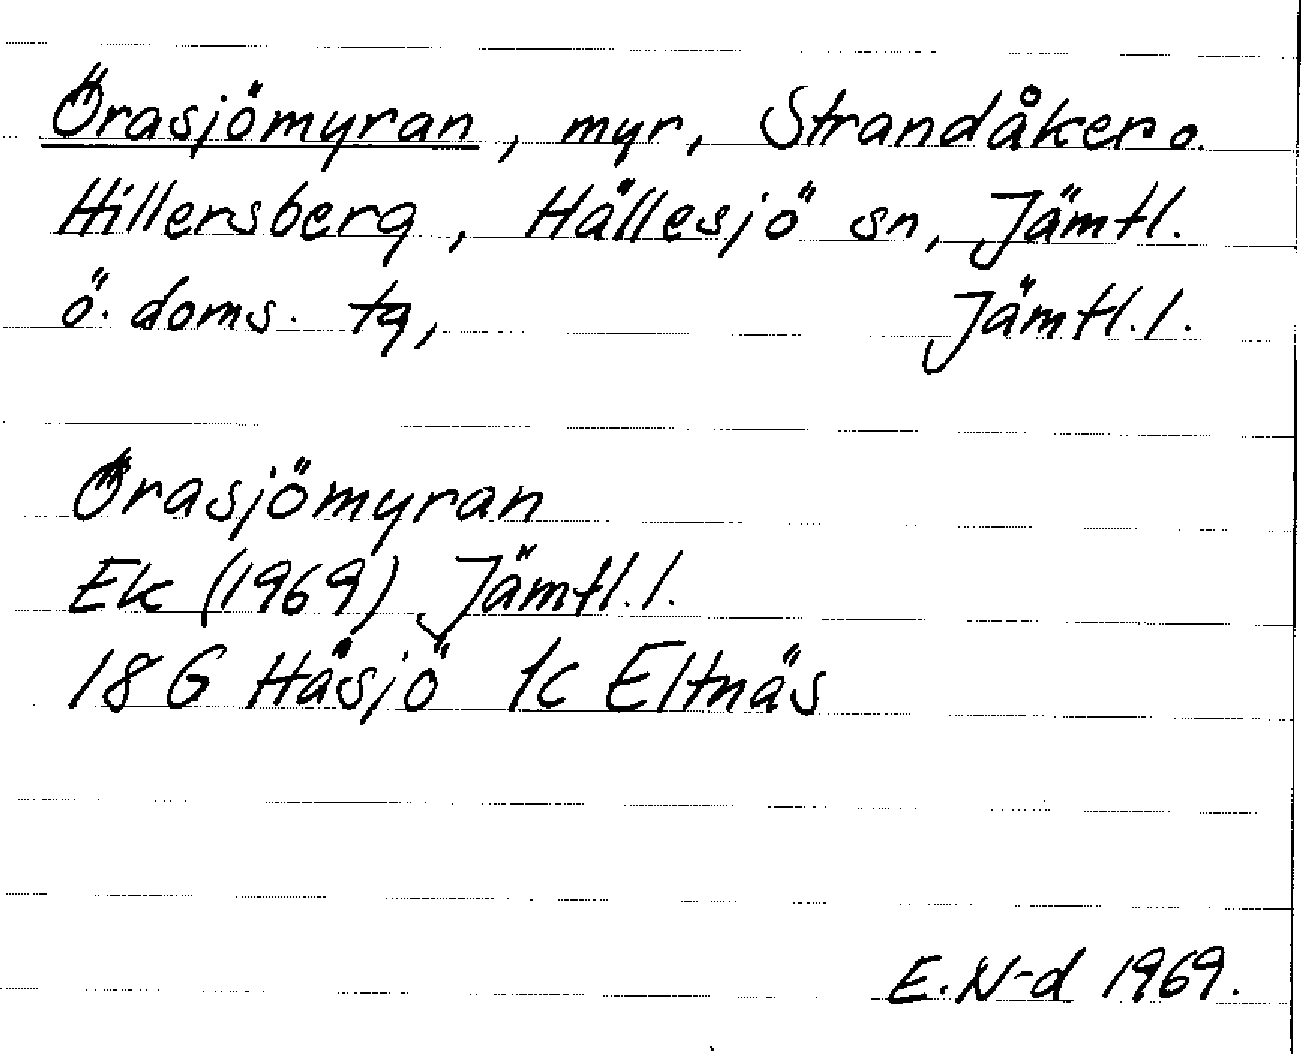 Örasjömyran, myr, Strandåker o.
Hillersberg, Hällesjö sn, Jämtl.
ö. doms. tg, Jämtl. l.
Örasjömyran
Ek (1969) Jämtl. l.
18 G Häsjö 1c Eltnäs
E. N-d 1969.